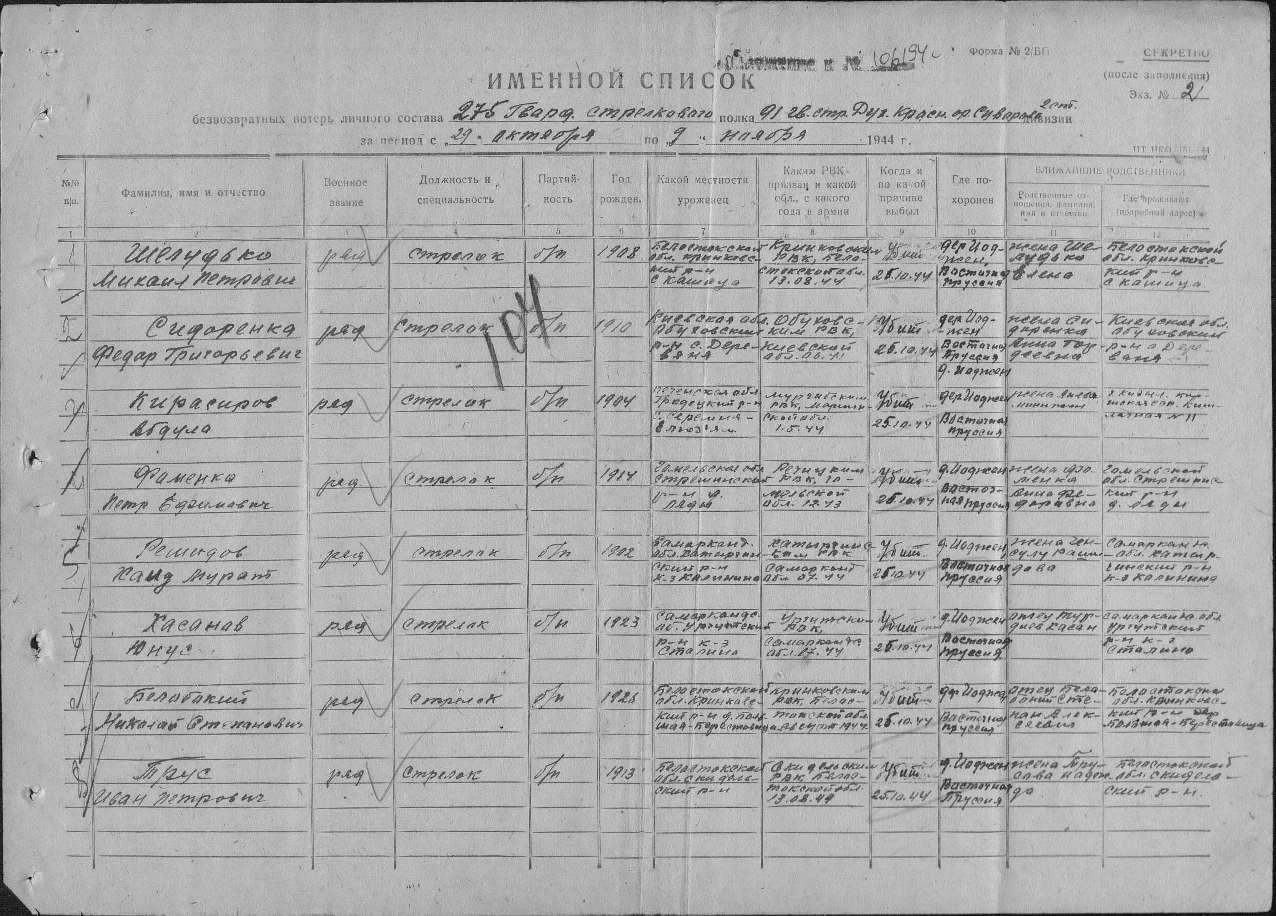 Приложение к № 106194с
Форма № 2/БП
СЕКРЕТНО
(после заполнения)
Экз. № 2
ИМЕННОЙ СПИСОК
безвозвратных потерь личного состава 275 Гвард. стрелкового полка 91 гв. стр. Дух. Красн. ор. Суворова 2 ст. дивизии
за период с 29 октября по 9 ноября 1944 г.
№№ п/п.
Фамилия, имя и отчество
Военное звание
Должность и специальность
Партийность
Год рожден.
Какой местности уроженец
Каким РВК призван и какой обл., с какого года в армии
Когда и по какой причине выбыл
Где похоронен
БЛИЖАЙШИЕ РОДСТВЕННИКИ
Родственные отношения, фамилия, имя и отчество
Где проживают (подробный адрес)
1 2 3 4 5 6 7 8 9 10 11 12
104
1 Шелудько Михаил Петрович ряд стрелок б/п 1908
Белостокской обл. Кринковский р-н с Кашица
Кринковским РВК, Белостокской обл. 13.08.44
Убит 25.10.44
дер Иоджен, Восточная Пруссия
жена Шелудько Елена
Белостокской обл. Кринковский р-н с Кашица
2 Сидоренка Федар Григорьевич ряд стрелок б/п 1910
Киевская обл. Обуховский р-н с. Деревяня
Обуховским РВК, Киевской обл.
Убит 25.10.44
дер Иоджен Восточная Пруссия д. Иоджен
жена Сидоренка Анна
Киевская обл. Обуховский р-н
3 Кирасиров Абдула ряд стрелок б/п 1904
РВК, 1.5.44
Убит 25.10.44
дер Иоджен Восточная Пруссия
жена
4 Фаменка Петр Ефимович ряд стрелок б/п 1914
Гомельская обл Стрешинский р-н д. Ляды
Речицким РВК, Гомельской обл. 12.43
Убит 25.10.44
д. Иоджен Восточная Пруссия
жена Фаменка Федаровна
Гомельской обл. Стрешинский р-н д. Ляды
5 Решидов Хаид Мурат ряд стрелок б/п 1902
Самарканд. обл. Катырчинский р-н к-з Калинина
Катырчинским РВК Самаркант обл 07.44
Убит 25.10.44
д. Иоджен Восточная Пруссия
жена
Самаркан обл. Катырчинский р-н к-з Калинина
6 Хасанав Юнус ряд стрелок б/п 1923
Самаркандс. об. Ургутский р-н к-з Сталина
Ургутским РВК, Самаркандс обл. 07.44
Убит 25.10.44
д. Иоджен Восточная Пруссия
отец Хасан
Самарканд обл Ургутский р-н к-з Сталина
7 Белабокий Николай Степанович ряд стрелок б/п 1926
Белостокской обл. Кринковский р-н д. Большая-Берестовица
Кринковским РВК, Белостокской обл август 1944
Убит 25.10.44
др Иоджен Восточная Пруссия
отец Белабокий Степан Алексеевич
Белостокской обл. Кринковский р-н дер Большая-Берестовица
8 Трус Иван Петрович ряд стрелок б/п 1913
Белостокской обл. Скидельский р-н
Скидельским РВК Белостокской обл. 13.08.44
Убит 25.10.44
д. Иоджен Восточная Пруссия
жена Трусава Надежда
Белостокской обл. Скидельский р-н.